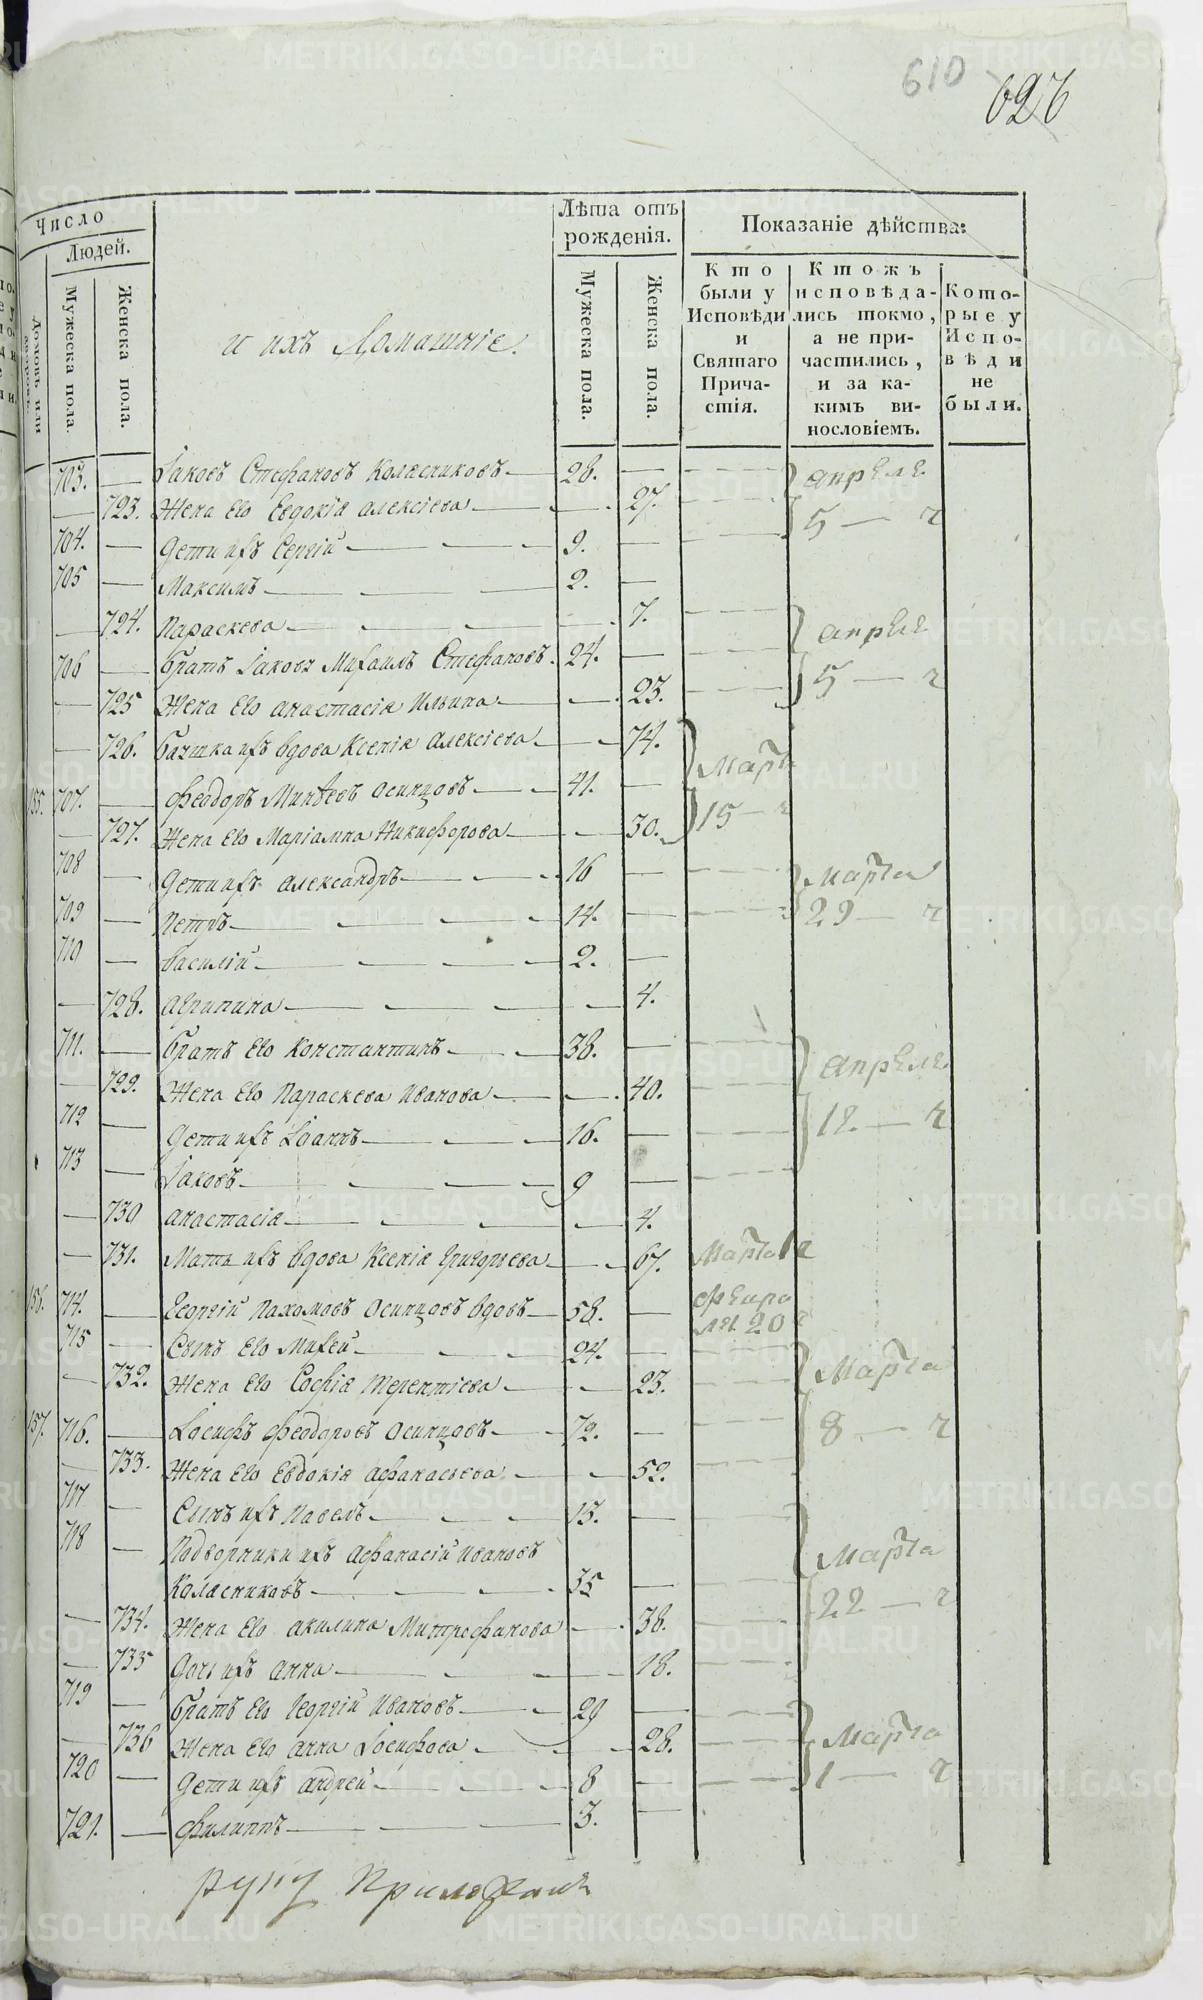 610
626
Число
Людей.
Домовъ или дворовъ.
Мужеска пола.
Женска пола.
и ихъ Домашніе.
Лѣта отъ рожденія.
Мужеска пола.
Женска пола.
Показаніе дѣйства:
Кто были у Исповѣди и Святаго Причастія.
Ктожъ исповѣдались токмо, а не причастились, и за какимъ винословіемъ.
Которые у Исповѣди не были.
703. — Іаковъ Стефановъ Колясниковъ — 28. — апреля
— 723. Жена его Евдокія алексіева — 27. 5 — ч
704. — Дети ихъ Сергій — 9. —
705 — Максимъ — 2. —
— 724. Параскева — 7. апреля
706 — братъ Іаковъ Михаилъ Стефановъ. 24. — 5 — ч
— 725 Жена его анастасія Ильина — 23.
— 726. вдова Ксенія алексіева — 74. Марта
155. 707. — Феодоръ Михеевъ осинцовъ — 41. — 15 — ч
— 727. Жена его Маріамна Никифорова — 30.
708 — Дети ихъ александръ — 16 — Марта
709 — Петръ — 14. — 29 — ч
710 — василій — 2. —
— 728. агрипина — 4.
711. — братъ его Константинъ — 38. — апреля
— 729. Жена его Параскева Иванова — 40. 12. — ч
712 — Дети ихъ Іоаннъ — 16. —
713 — Іаковъ — 9 —
— 730 анастасія — 4.
— 731. Мать ихъ вдова Ксенія Григорьева — 67. Марта 1 ч
156. 714. — Георгій Пахомовъ Осинцовъ вдовъ — 58. — Февраля 20 ч
715 — Сынъ его Михей — 24. — Марта
— 732. Жена его Софія Терентіева — 23.
157. 716. — Іосифъ Феодоровъ осинцовъ — 72. — 8 — ч
— 733. Жена его Евдокія афанасьева — 52.
717 — Сынъ ихъ Павелъ — 13. —
718 — Подворники ихъ афанасій Ивановъ Марта
Колясниковъ — 35 — 22 — ч
— 734. Жена его акилина Митрофанова — 38.
— 735 Дочь ихъ анна — 18.
719 — братъ его Георгій Ивановъ — 29 — Марта
— 736 Жена его анна Іосифова — 28.
720 — Дети ихъ андрей — 8 — 1 — ч
721. — Филиппъ — 3. —
руку Приложилъ
METRIKI.GASO-URAL.RU